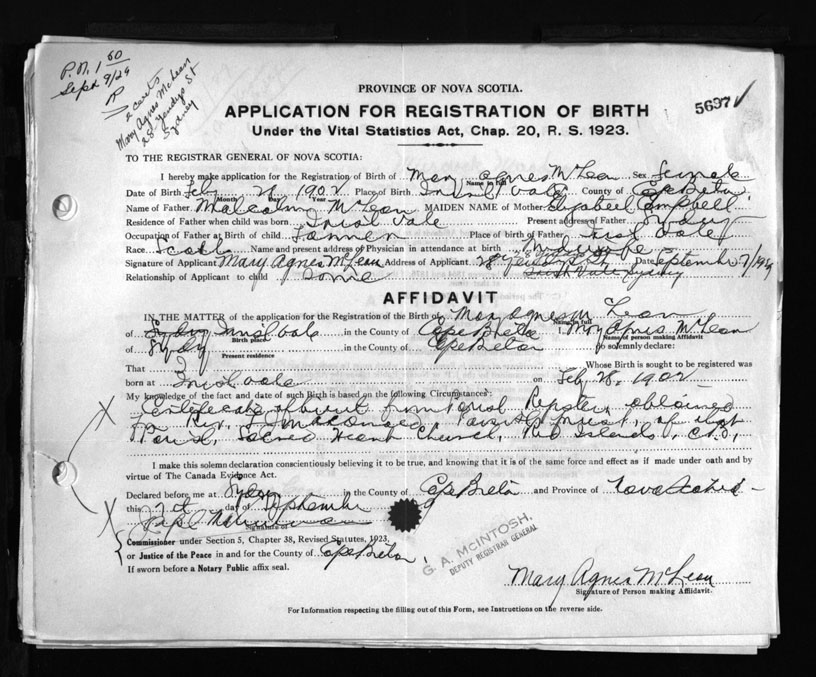 P.N. 1 50
Sept 9/29
2 certs
Mary Agnes McLean
28 St
Sydney
PROVINCE OF NOVA SCOTIA.
5697
APPLICATION FOR REGISTRATION OF BIRTH
Under the Vital Statistics Act, Chap. 20, R. S. 1923.
TO THE REGISTRAR GENERAL OF NOVA SCOTIA:
I hereby make application for the Registration of Birth of Mary Agnes McLean Sex Female
Name in full
Date of Birth Feby 28 1902 Place of Birth Irish Vale County of Cape Breton
Month Day Year
Name of Father Malcolm McLean MAIDEN NAME of Mother Elizabeth Campbell
Residence of Father when child was born Irish Vale Present address of Father Sydney
Occupation of Father at Birth of child Farmer Place of birth of Father Irish Vale
Race Scotch Name and present address of Physician in attendance at birth
Signature of Applicant Mary Agnes McLean Address of Applicant 28 St Date September 7/1929
Irish Vale Sydney
Relationship of Applicant to child Same
AFFIDAVIT
IN THE MATTER of the application for the Registration of the Birth of Mary Agnes McLean
Name in full
of Sydney Irish Vale in the County of Cape Breton I, Mary Agnes McLean
Birth place Name of person making Affidavit
of Sydney in the County of Cape Breton do solemnly declare:
Present residence
That I Whose Birth is sought to be registered was
born at Irish Vale on Feby 28, 1902
My knowledge of the fact and date of such Birth is based on the following Circumstances:
Certificate of birth from Parish Register obtained
from Rev. McDonald, Parish Priest, of that
Parish, Sacred Heart Church, Red Islands, C.B.,
I make this solemn declaration conscientiously believing it to be true, and knowing that it is of the same force and effect as if made under oath and by
virtue of The Canada Evidence Act.
Declared before me at Sydney in the County of Cape Breton and Province of Nova Scotia
this 7th day of September
Signature of
Commissioner under Section 5, Chapter 38, Revised Statutes, 1923,
or Justice of the Peace in and for the County of Cape Breton.
If sworn before a Notary Public affix seal.
G. A. McINTOSH,
DEPUTY REGISTRAR GENERAL
Mary Agnes McLean
Signature of Person making Affidavit.
For Information respecting the filling out of this Form, see Instructions on the reverse side.